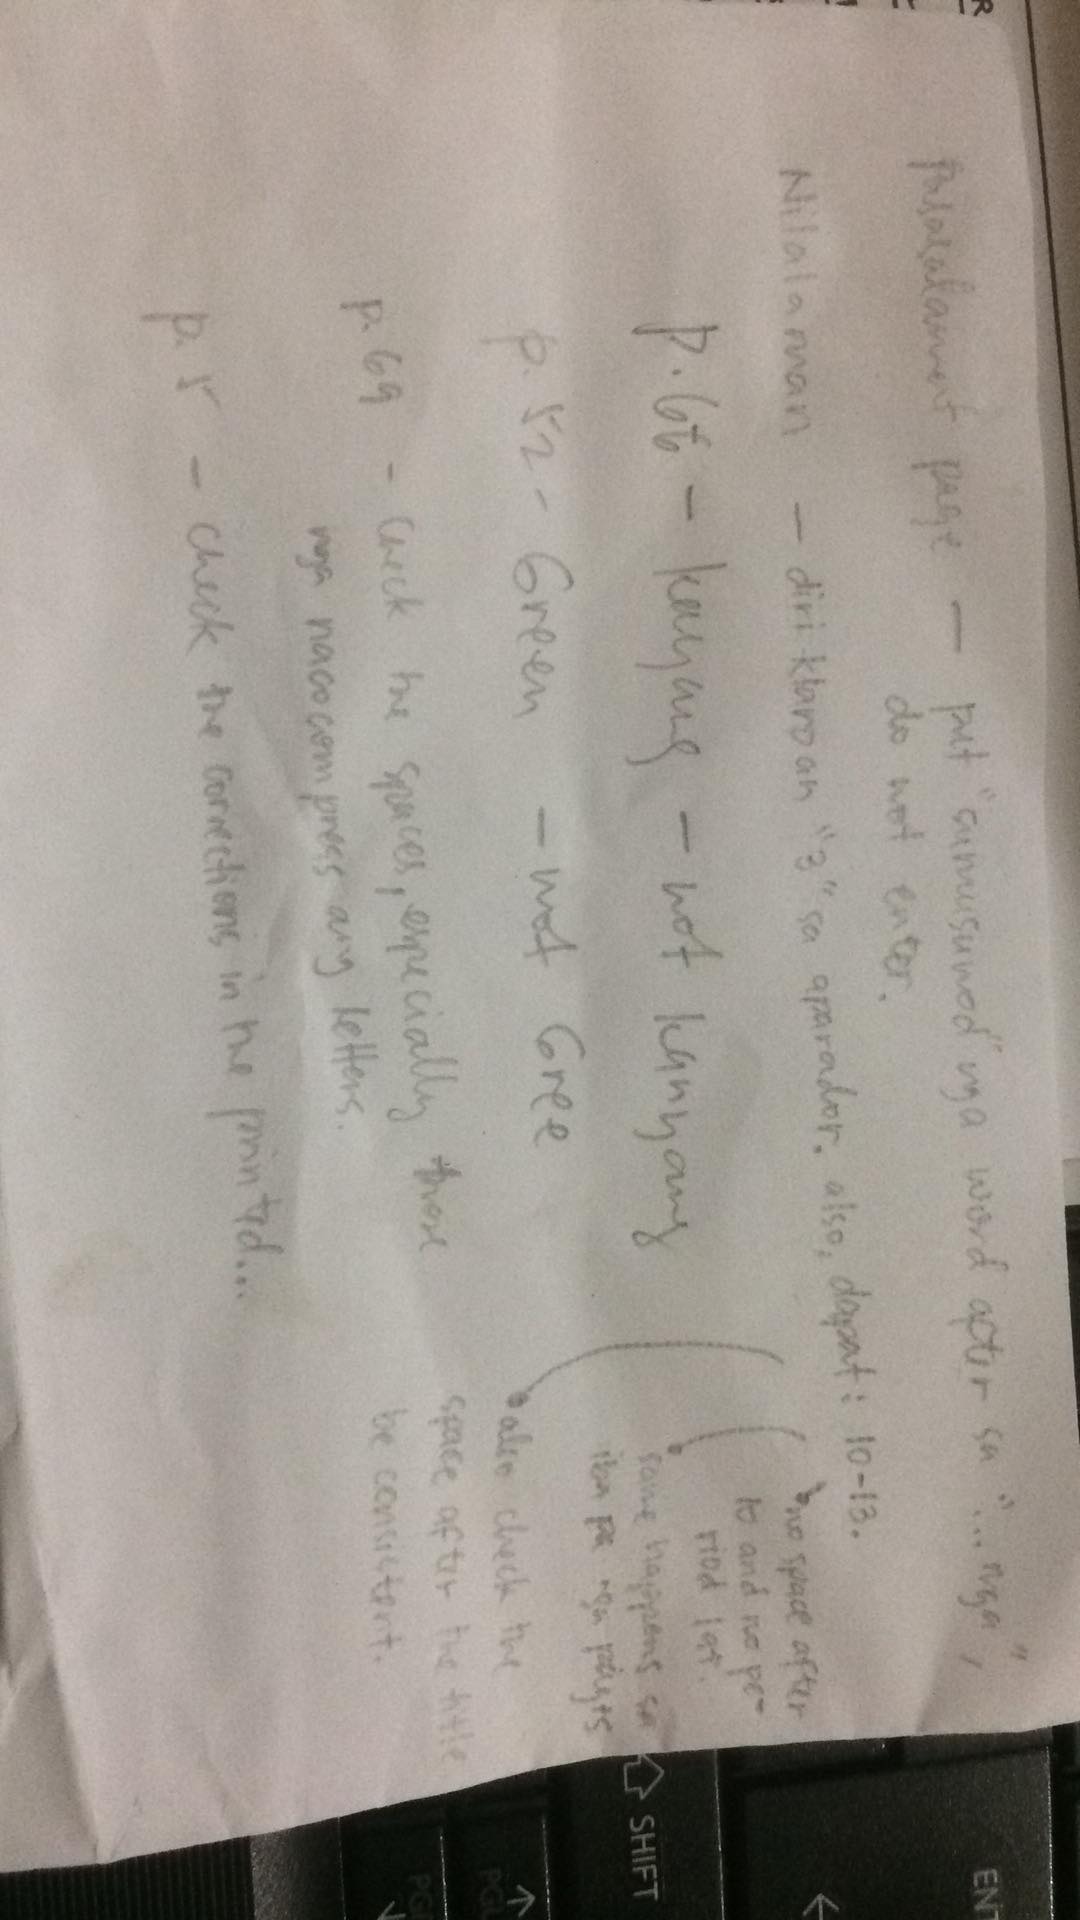 Pasasalamat page — put "sumusunod" nga word after sa "...nga",
do not enter.
Nilalaman — diri klaro an "3" sa aparador. also, dapat: 10-13.
no space after
10 and no pe-
riod last.
same happens sa
iba pa nga pages
also check the
space after the title
be consistent.
p. 66 - kayang - not kanyang
p. 52 - Green - not Gree
p. 69 - Check the spaces, especially those
nga nacocompress ang letters.
p. 5 - Check the corrections in the printed...
ENT
←
SHIFT
↑
PGU
PG
↓
R